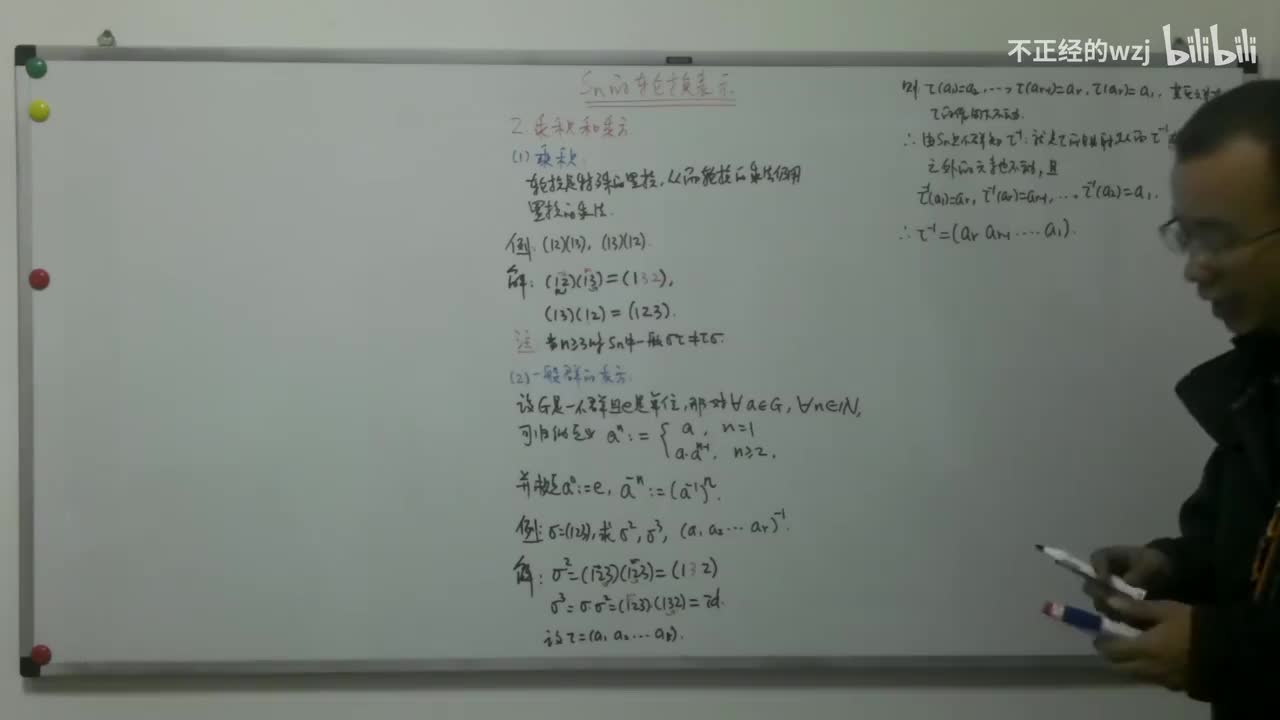 不正经的wzj bilibili
Sn的轮换表示
2. 乘积和乘方
(1) 乘积
轮换是特殊的置换,从而轮换的乘法使用
置换的乘法.
例: (12)(13), (13)(12).
解: (12)(13)=(132),
(13)(12)=(123).
注 当n≥3时Sn中一般στ≠τσ.
(2) 一般群的乘方.
设G是一个群且e是单位,那对∀a∈G, ∀n∈ℕ,
可归纳定义 aⁿ:= { a, n=1
a·aⁿ⁻¹, n≥2.
并规定a⁰:=e, a⁻ⁿ:=(a⁻¹)ⁿ.
例: σ=(123),求σ²,σ³, (a₁ a₂ ··· aᵣ)⁻¹.
解: σ²=(123)(123)=(132)
σ³=σ·σ²=(123)(132)=id.
设τ=(a₁ a₂ ··· aᵣ).
则 τ(a₁)=a₂, ···, τ(aᵣ₋₁)=aᵣ, τ(aᵣ)=a₁.
∴ 由Sn是个群知τ⁻¹
之外的元素也不动,且
τ⁻¹(a₁)=aᵣ, τ⁻¹(aᵣ)=aᵣ₋₁, ··· τ⁻¹(a₂)=a₁.
∴ τ⁻¹=(aᵣ aᵣ₋₁ ···· a₁).